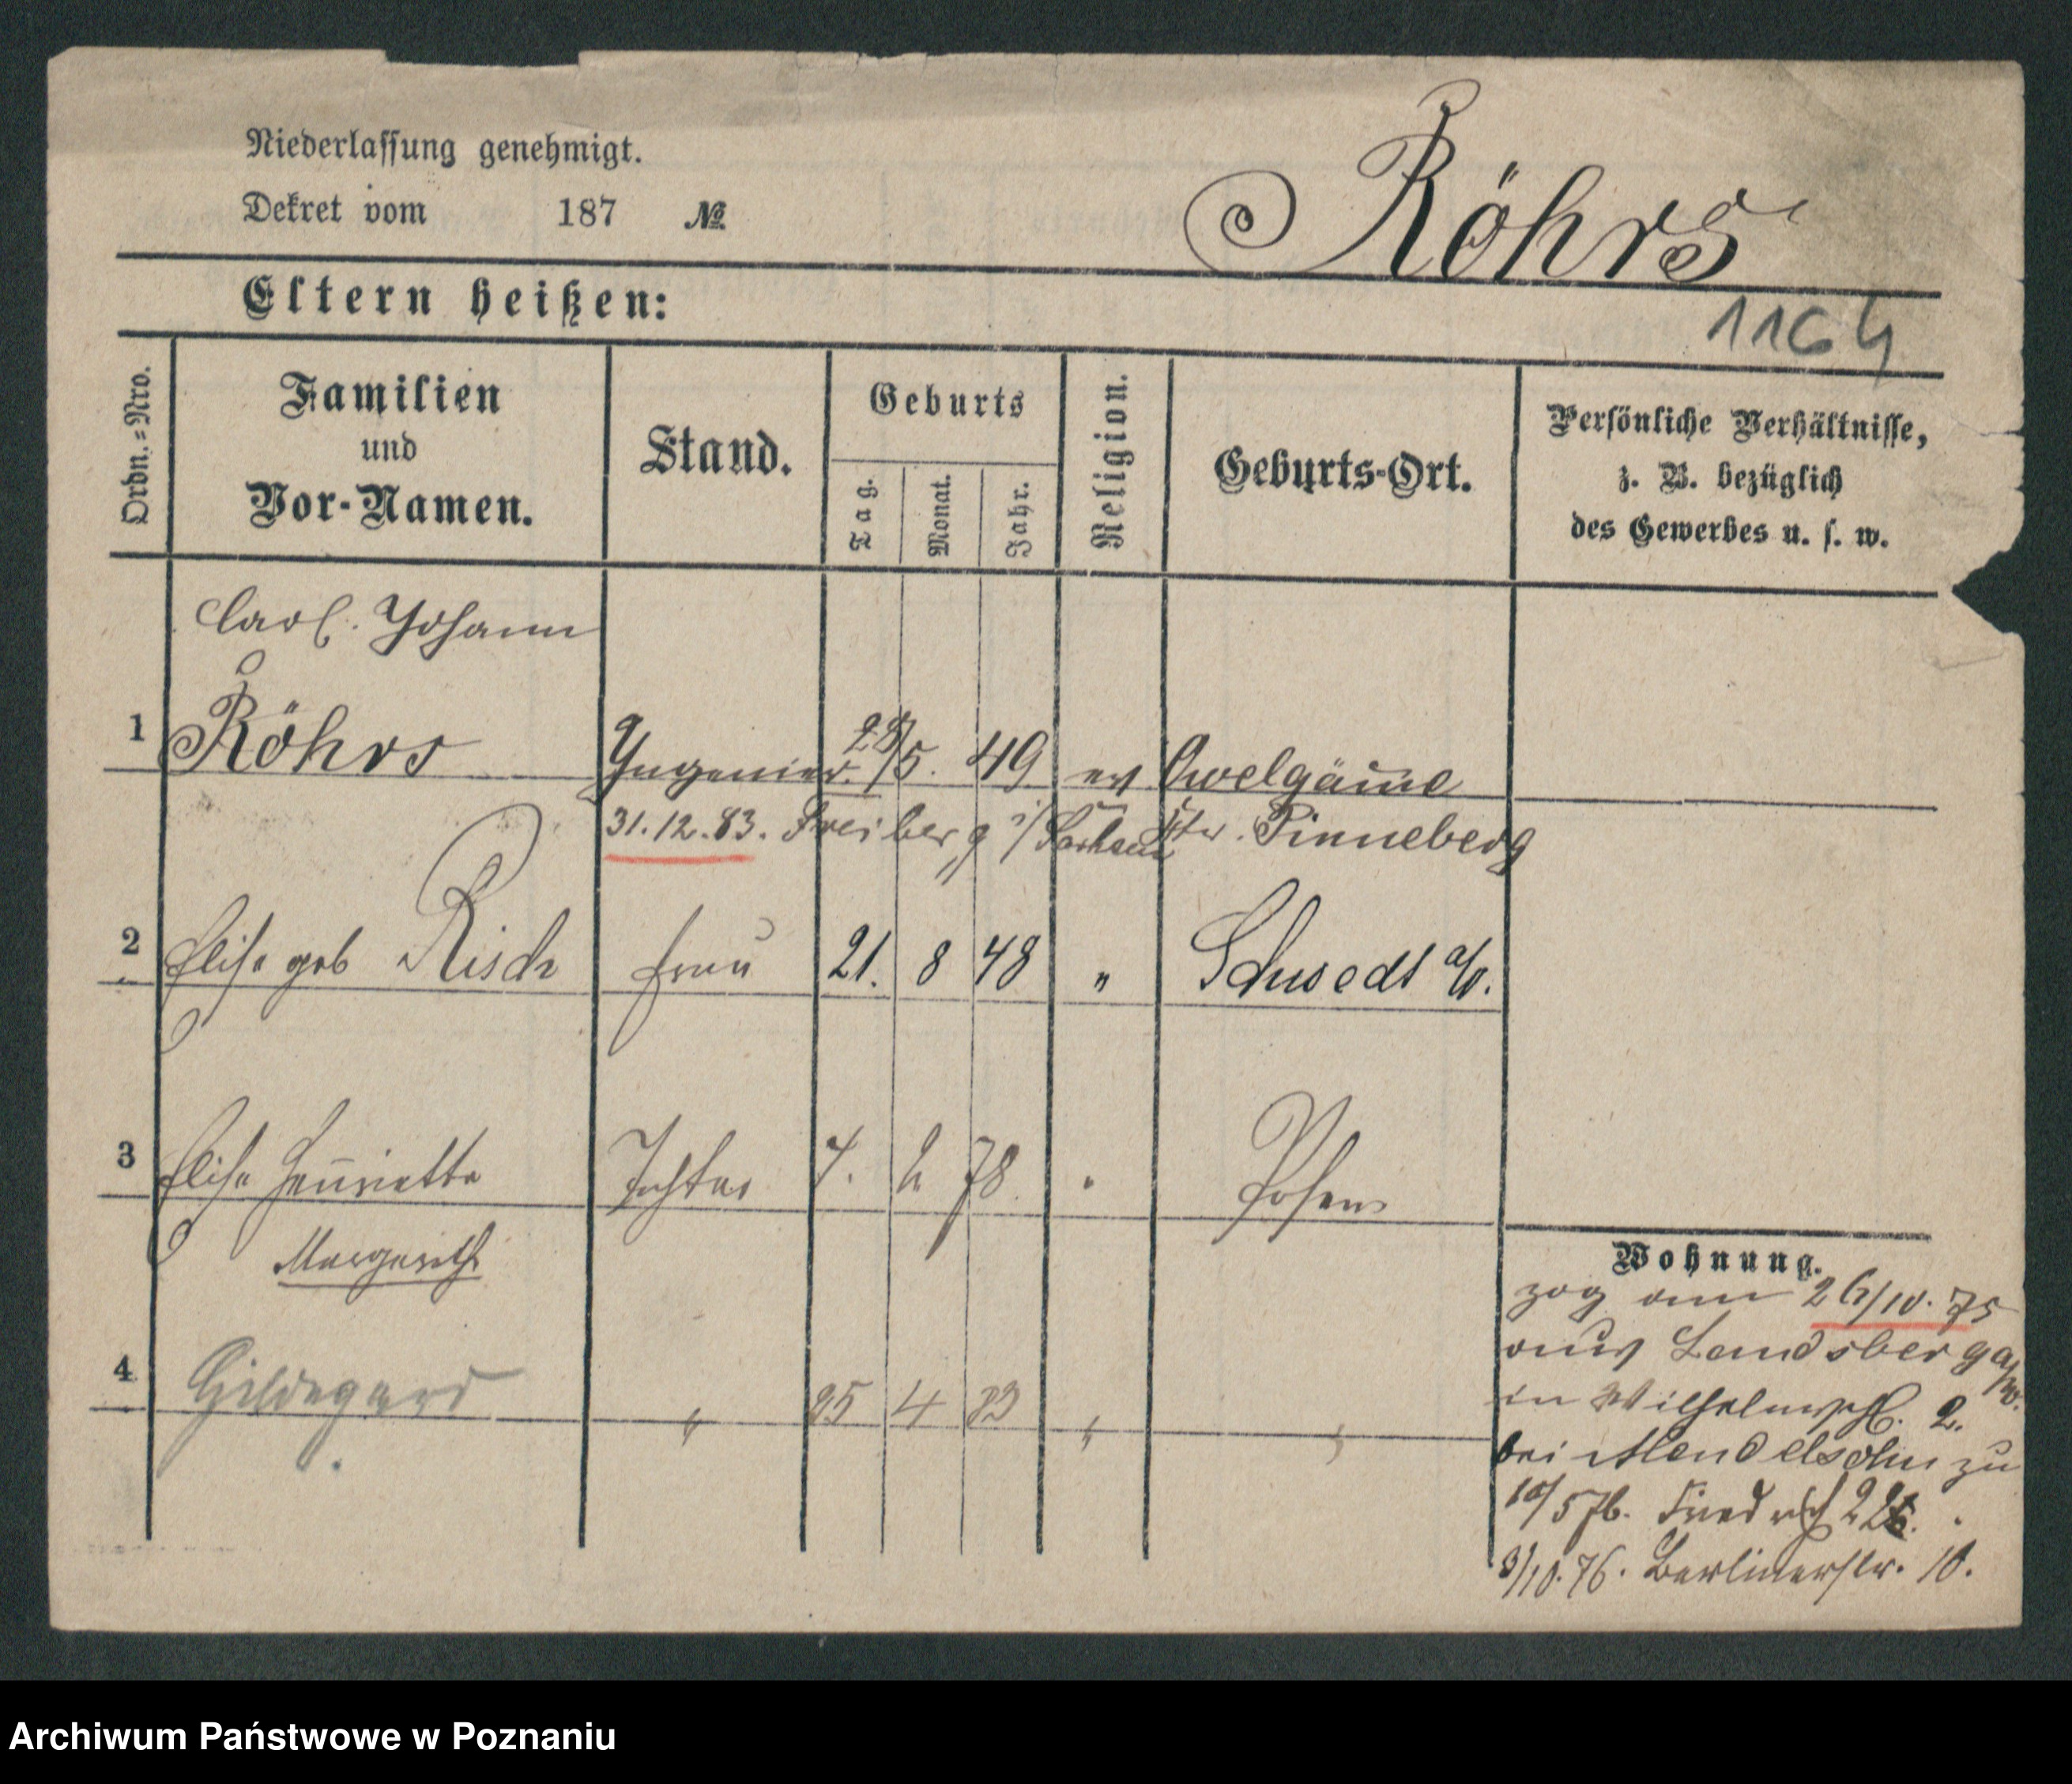 Niederlassung genehmigt.
Dekret vom 187 №
Röhrs
Eltern heißen:
1164
Ordn.=Nro.
Familien
und
Vor-Namen.
Stand.
Geburts
Tag.
Monat.
Jahr.
Religion.
Geburts-Ort.
Persönliche Verhältnisse,
z. B. bezüglich
des Gewerbes u. s. w.
Carl. Johann
1 Röhrs Ingenieur. 28/5. 49 ev Owelgönne
31.12.83. Freiberg i/Sachsen Ktr. Pinneberg
2 Elise geb Risch Frau 21. 8 48 " Schwedt a/O.
3 Elise Henriette Tochter 4. 2 78 " Posen
Margareth
4 Hildegard " 25 4 83 " "
Wohnung.
zog am 26/10. 75
aus Landsberg a/W.
in Wilhelmspl. 2.
bei Mendelsohn zu
10/5 76. Friedrich
3/10. 76. Berlinerstr. 10.
Archiwum Państwowe w Poznaniu